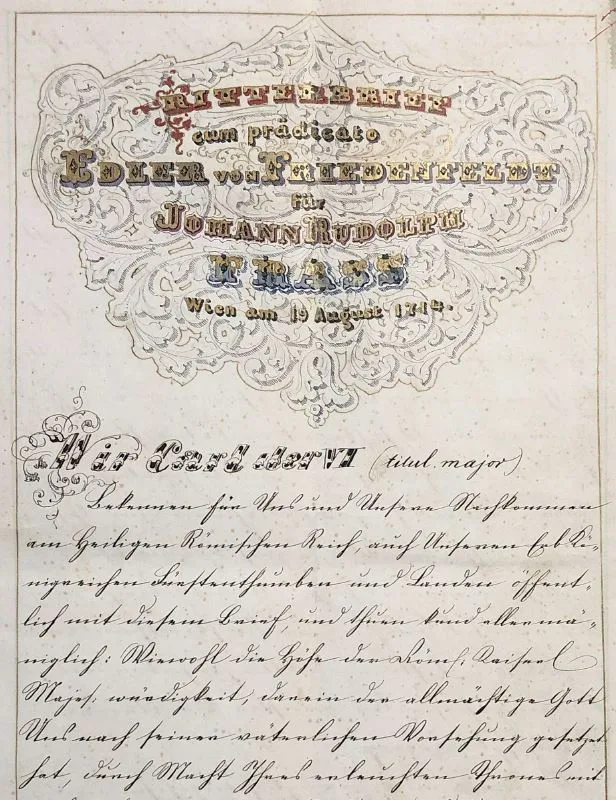 RITTERBRIEF
cum prädicato
EDLER VON FRIEDENFELDT
für
JOHANN RUDOLPH
Wien am 19 August 1714.
Wir Carl der VI (titul. major)
Bekennen für Uns und Unsere Nachkommen
am Heiligen Römischen Reich, auch Unseren Erb Kö-
nigreichen Fürstenthumben und Landen öffent-
lich mit diesem Brief, und thuen kund allermä-
niglich: Wiewohl die Höhe der Röm: Kaiserl
Majes: würdigkeit, darein der allmächtige Gott
Uns nach seiner väterlichen Vorsehung gesetzet
hat, durch Macht Ihres erleuchten Thrones mit